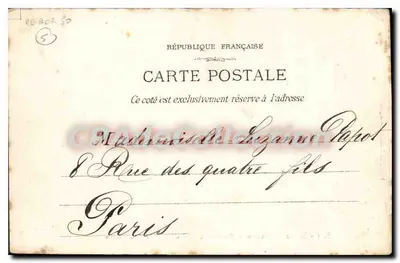 5
RÉPUBLIQUE FRANÇAISE
CARTE POSTALE
Ce côté est exclusivement réservé à l'adresse
Mademoiselle Suzanne Papot
8 Rue des quatre fils
Paris